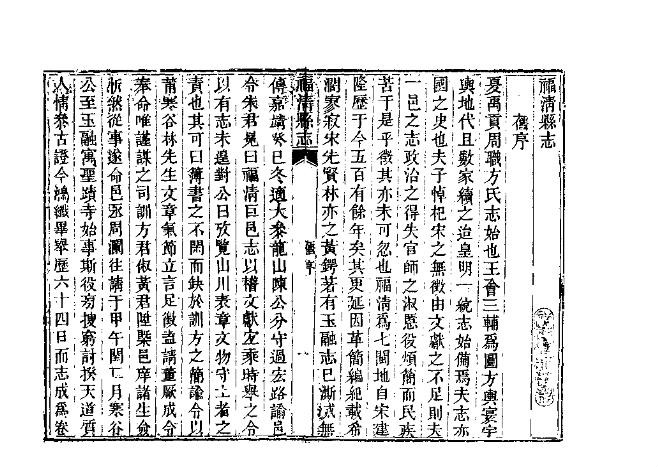 福清縣志
舊序
夏禹貢周職方氏志始也王會三輔爲圖方輿寰宇
與地代且數家續之迨皇明一統志始備焉夫志亦
國之史也夫子悼杞宋之無徵由文獻之不足則夫
一邑之志政治之得失官師之淑慝役煩簡而民疾
苦于是乎徵其亦未可忽也福清爲七閩地自宋建
隆歷于今五百有餘年矣其更延因革簡編紀載希
濶寥寂宋先賢林亦之黃鍔若有玉融志已漸滅無
福清縣志
舊序
傳嘉靖癸巳冬適大叅龍山陳公分守過宏路諭邑
令朱君晃曰福清巨邑志以稽文獻宏乘時舉之令
以有志未遑對公曰攷覽山川表章文物守土者之
責也其可曰簿書之不閒而缺於訓方之簡諭令以
莆寒谷林先生文章氣節立言足徵盍請董厥成令
奉命唯謹謀之司訓方君俶黃君陞槩邑庠諸生僉
忻然從事遂命邑丞周瀾往請于甲午閏二月寒谷
公至玉融寓聖蹟寺始事斯役旁搜窮討揆天道質
人情叅古證今鴻纖畢舉歷六十四日而志成爲卷